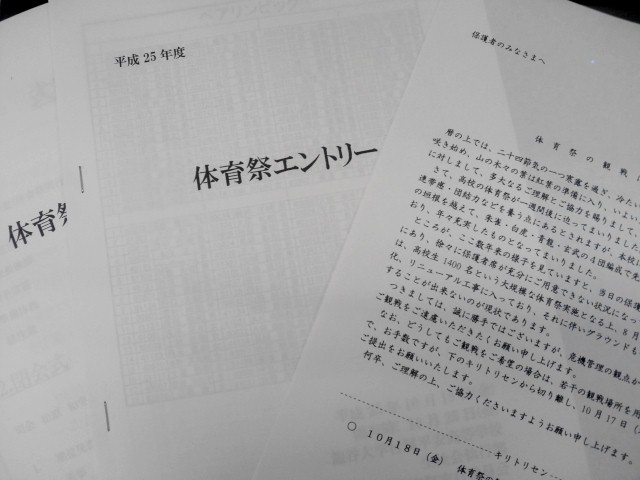 平成25年度
体育祭エントリー
体育祭
保護者のみなさまへ
体育祭の観戦
暦の上では、二十四節気の一つ寒露を過ぎ、みたい
咲き始め、山の木々の葉は紅葉の準備に入り、いよい
に対しまして、多大なるご理解とご協力を賜りまして、
さて、高校の体育祭が一週間後に迫ってまいりました
連帯感・団結力などを養う点にあるとされますが、本校に
の垣根を越えて、朱雀・白虎・青龍・玄武の4団編成で元
おり、年々充実したものとなってまいりました。
ところが、ここ数年来の様子を見ていますと、当日の保護
にあり、徐々に保護者席が充分にご用意できない状況になっ
は、高校生1400名という大規模な体育祭実施となる上、8月
化、リニューアル工事に入っており、それに伴いグラウンドも
することが出来ないのが現状であります。
つきましては、誠に勝手ではございますが、危機管理の観点か
ご観戦をご遠慮いただきたくお願い申し上げます。
なお、どうしてもご観戦をご希望の場合は、若干の観戦場所を用
で、お手数ですが、下のキリトリセンから切り離し、10月17日(
ご提出をお願いいたします。
何卒、ご理解の上、ご協力くださいますようお願い申し上げます。
キリトリセン
○ 10月18日(金) 体育祭の